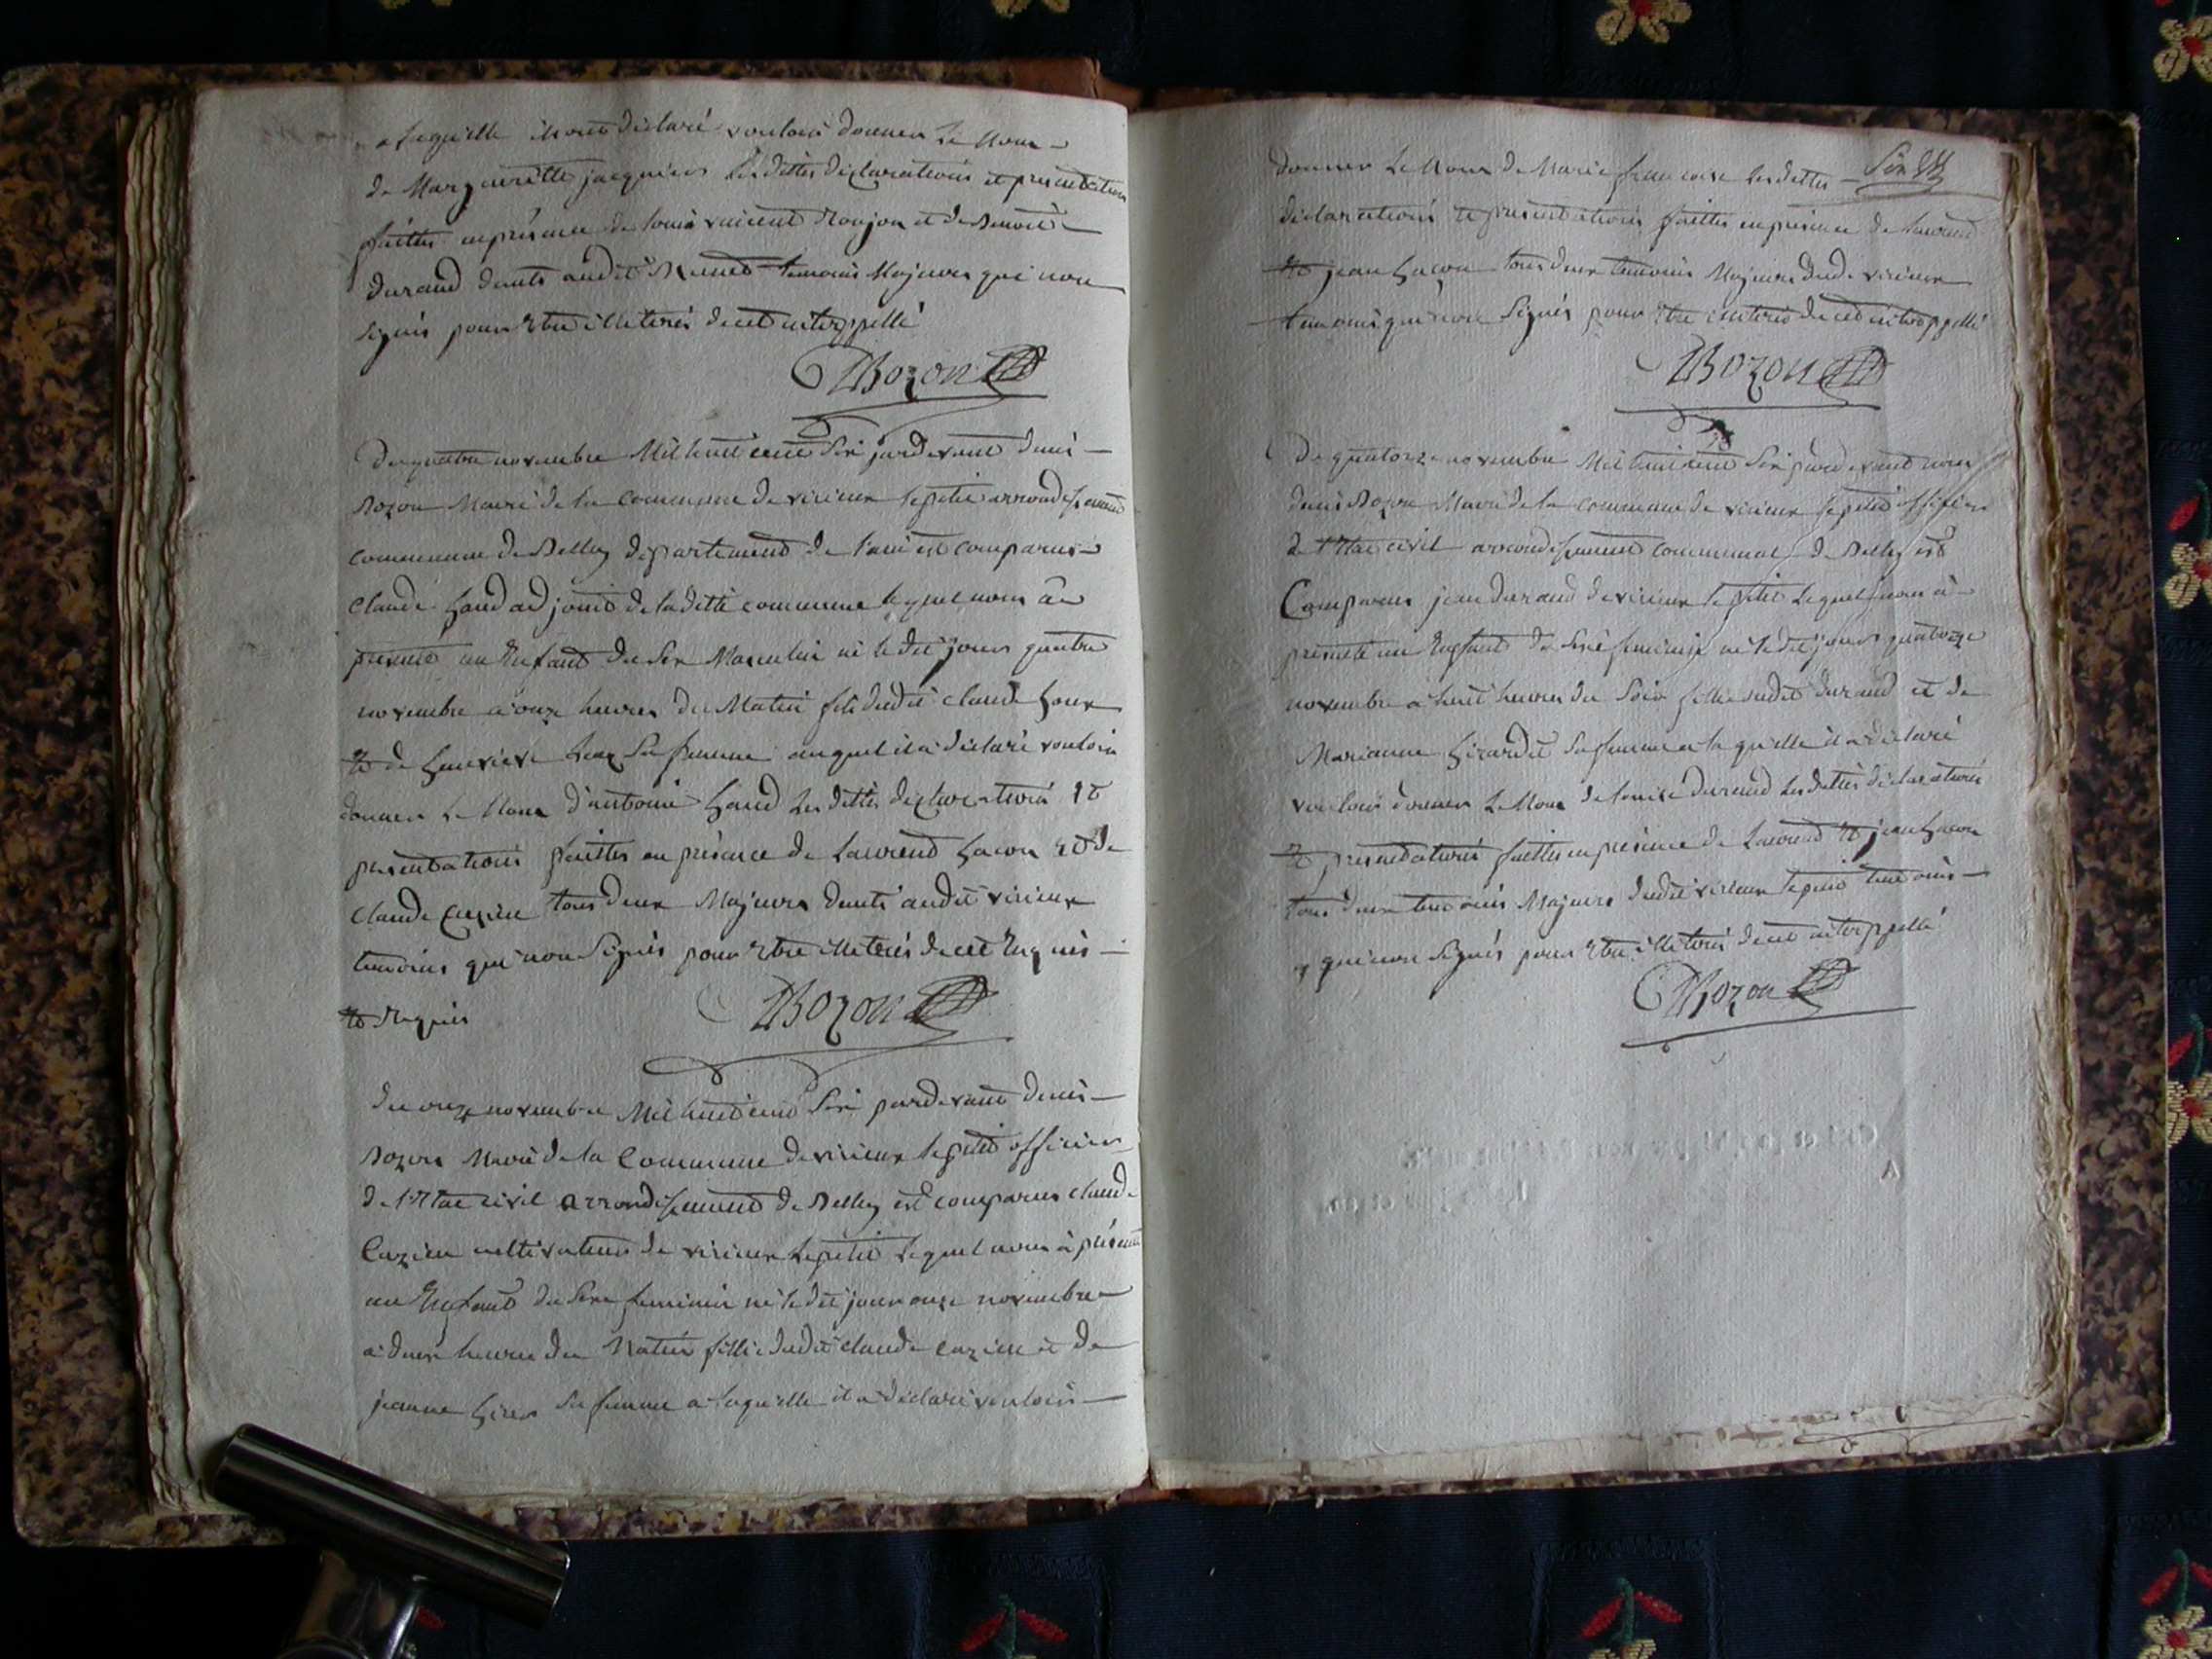 a laquelle ils ont déclaré vouloir donner le nom
de Margueritte jacquier les dittes déclarations et presentations
faittes en présence de louis vincent Roujon et de Benoit
durand dmts audit temoins Majeurs qui non
signés pour etre illeterés de cet interppellé
DBozon
Du quatre novembre Mil huit cent Six pardevant denis
Bozon Maire de la commune de virieux le petit arrondissement
communal de Belley département de l'ain est comparus
Claude adjoint de laditte commune lequel nous a
presenté un Enfant du Sex Masculin né le dit jour quatre
novembre a onze heures du Matin fils dudit Claude
et de Genevieve Sa femme auquel il a déclaré vouloir
donner le Nom d'antoine les dittes déclarations et
presentations faittes en présence de Laurend Gacon et de
Claude Cuzieu tous deux Majeurs dmts audit virieux
temoins qui non Signés pour Etre illeterés de cet Enquis
et Requis
DBozon
du onze novembre Mil huit cent Six pardevant denis
Bozon Maire de la Commune de virieux le petit officier
de l'Etat civil arrondissement de Belley est comparus claude
Cuzieu cultivateur de virieux le petit lequel nous à présenté
un Enfant du Sexe feminin né le dit jour onze novembre
a deux heures du Matin fille dudit claude cuzieu et de
jeanne Sa femme a laquelle il a déclaré vouloir
donner le Nom de Marie francoise les dittes
Six
déclarations et presentations faittes en présence de Laurend
et jean Gacon tous deux temoins Majeurs dud. virieux
temoins qui non Signés pour etre illeterés de cet interppellé
DBozon
Du quatorze novembre Mil huit cent Six pardevant nous
denis Bozon Maire de la commune de virieux le petit officier
de l'Etat civil arrondissement communal de Belley est
Comparus jean durand de virieux le petit lequel nous à
presenté un Enfant de Sexe feminin né le dit jour quatorze
novembre a huit heures du Soir fille dudit durand et de
Marianne Girardet Sa femme a laquelle il a déclaré
vouloir donner le Nom de louise durand les dittes déclarations
et presentations faittes en présence de Laurend et jean Gacon
tous deux temoins Majeurs dudit virieux le petit temoins
qui non Signés pour Etre illeterés de cet interppellé
DBozon